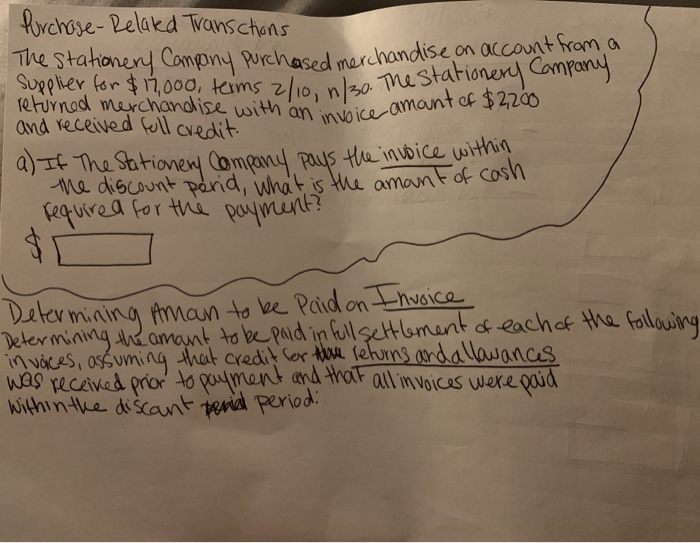 Purchase-Related Transctions
The Stationery Company purchased merchandise on account from a
Supplier for $17,000, terms 2/10, n/30. The Stationery Company
returned merchandise with an invoice amount of $2,200
and received full credit.
a) If The Stationery Company pays the invoice within
the discount period, what is the amount of cash
required for the payment?
$
Determining Amaun to be Paid on Invoice
Determining the amount to be paid in full settlement of each of the following
invoices, assuming that credit for returns and allowances
was received prior to payment and that all invoices were paid
within the discant period: